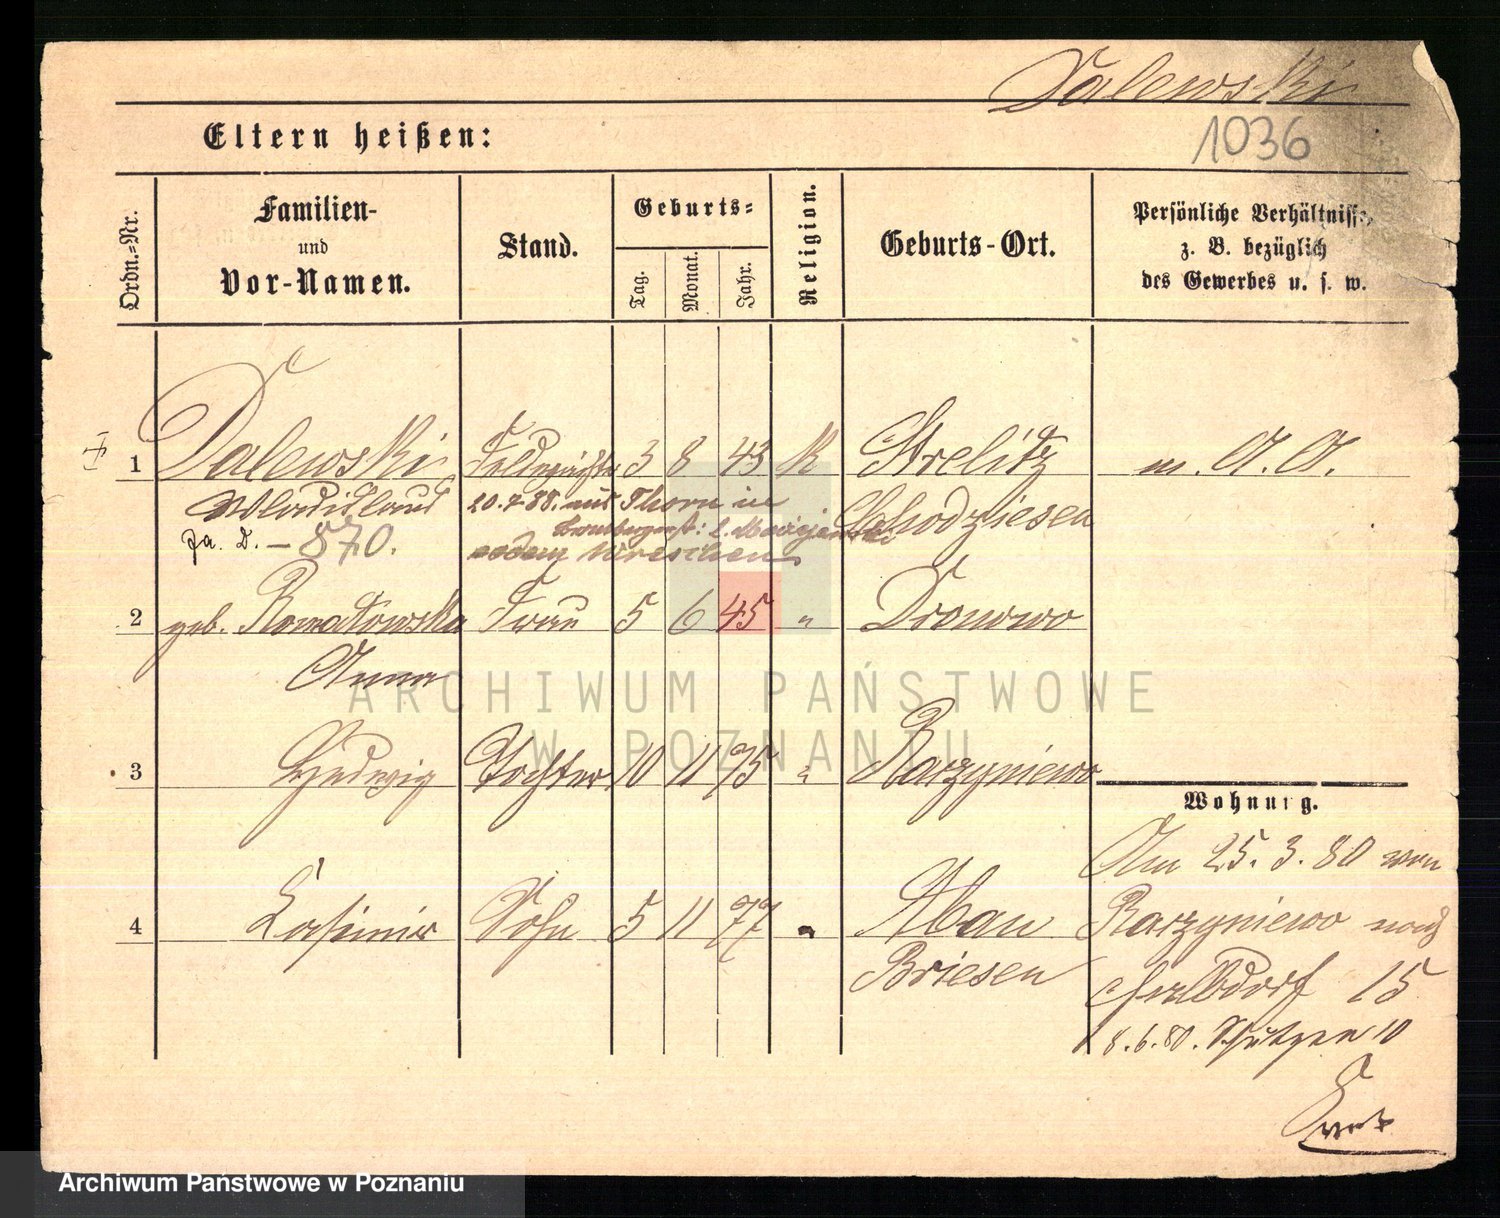 Dalewski
Eltern heißen:
1036
Ordn.=Nr.
Familien-
und
Vor-Namen.
Stand.
Geburts=
Tag.
Monat.
Jahr.
Religion.
Geburts-Ort.
Persönliche Verhältnisse,
z. B. bezüglich
des Gewerbes u. s. w.
1 Dalewski Feldwächter 3 8 43 K Strelitz m. A. A.
Wladislaus 20.7.88. aus Thorn in Chodziesen
fa. D. - 870. Wreschen
2 geb. Frau 5 6 45 " Dronowo
Anna
3 Hedwig Tochter 10 11 75 " Parzyniewo
Wohnung.
Am 25.3.80 von
4 Casimir Sohn 5 11 77 " Parzyniewo nach
Briesen 15
8.6.80. Schützen 10
ARCHIWUM PAŃSTWOWE
W POZNANIU
Archiwum Państwowe w Poznaniu